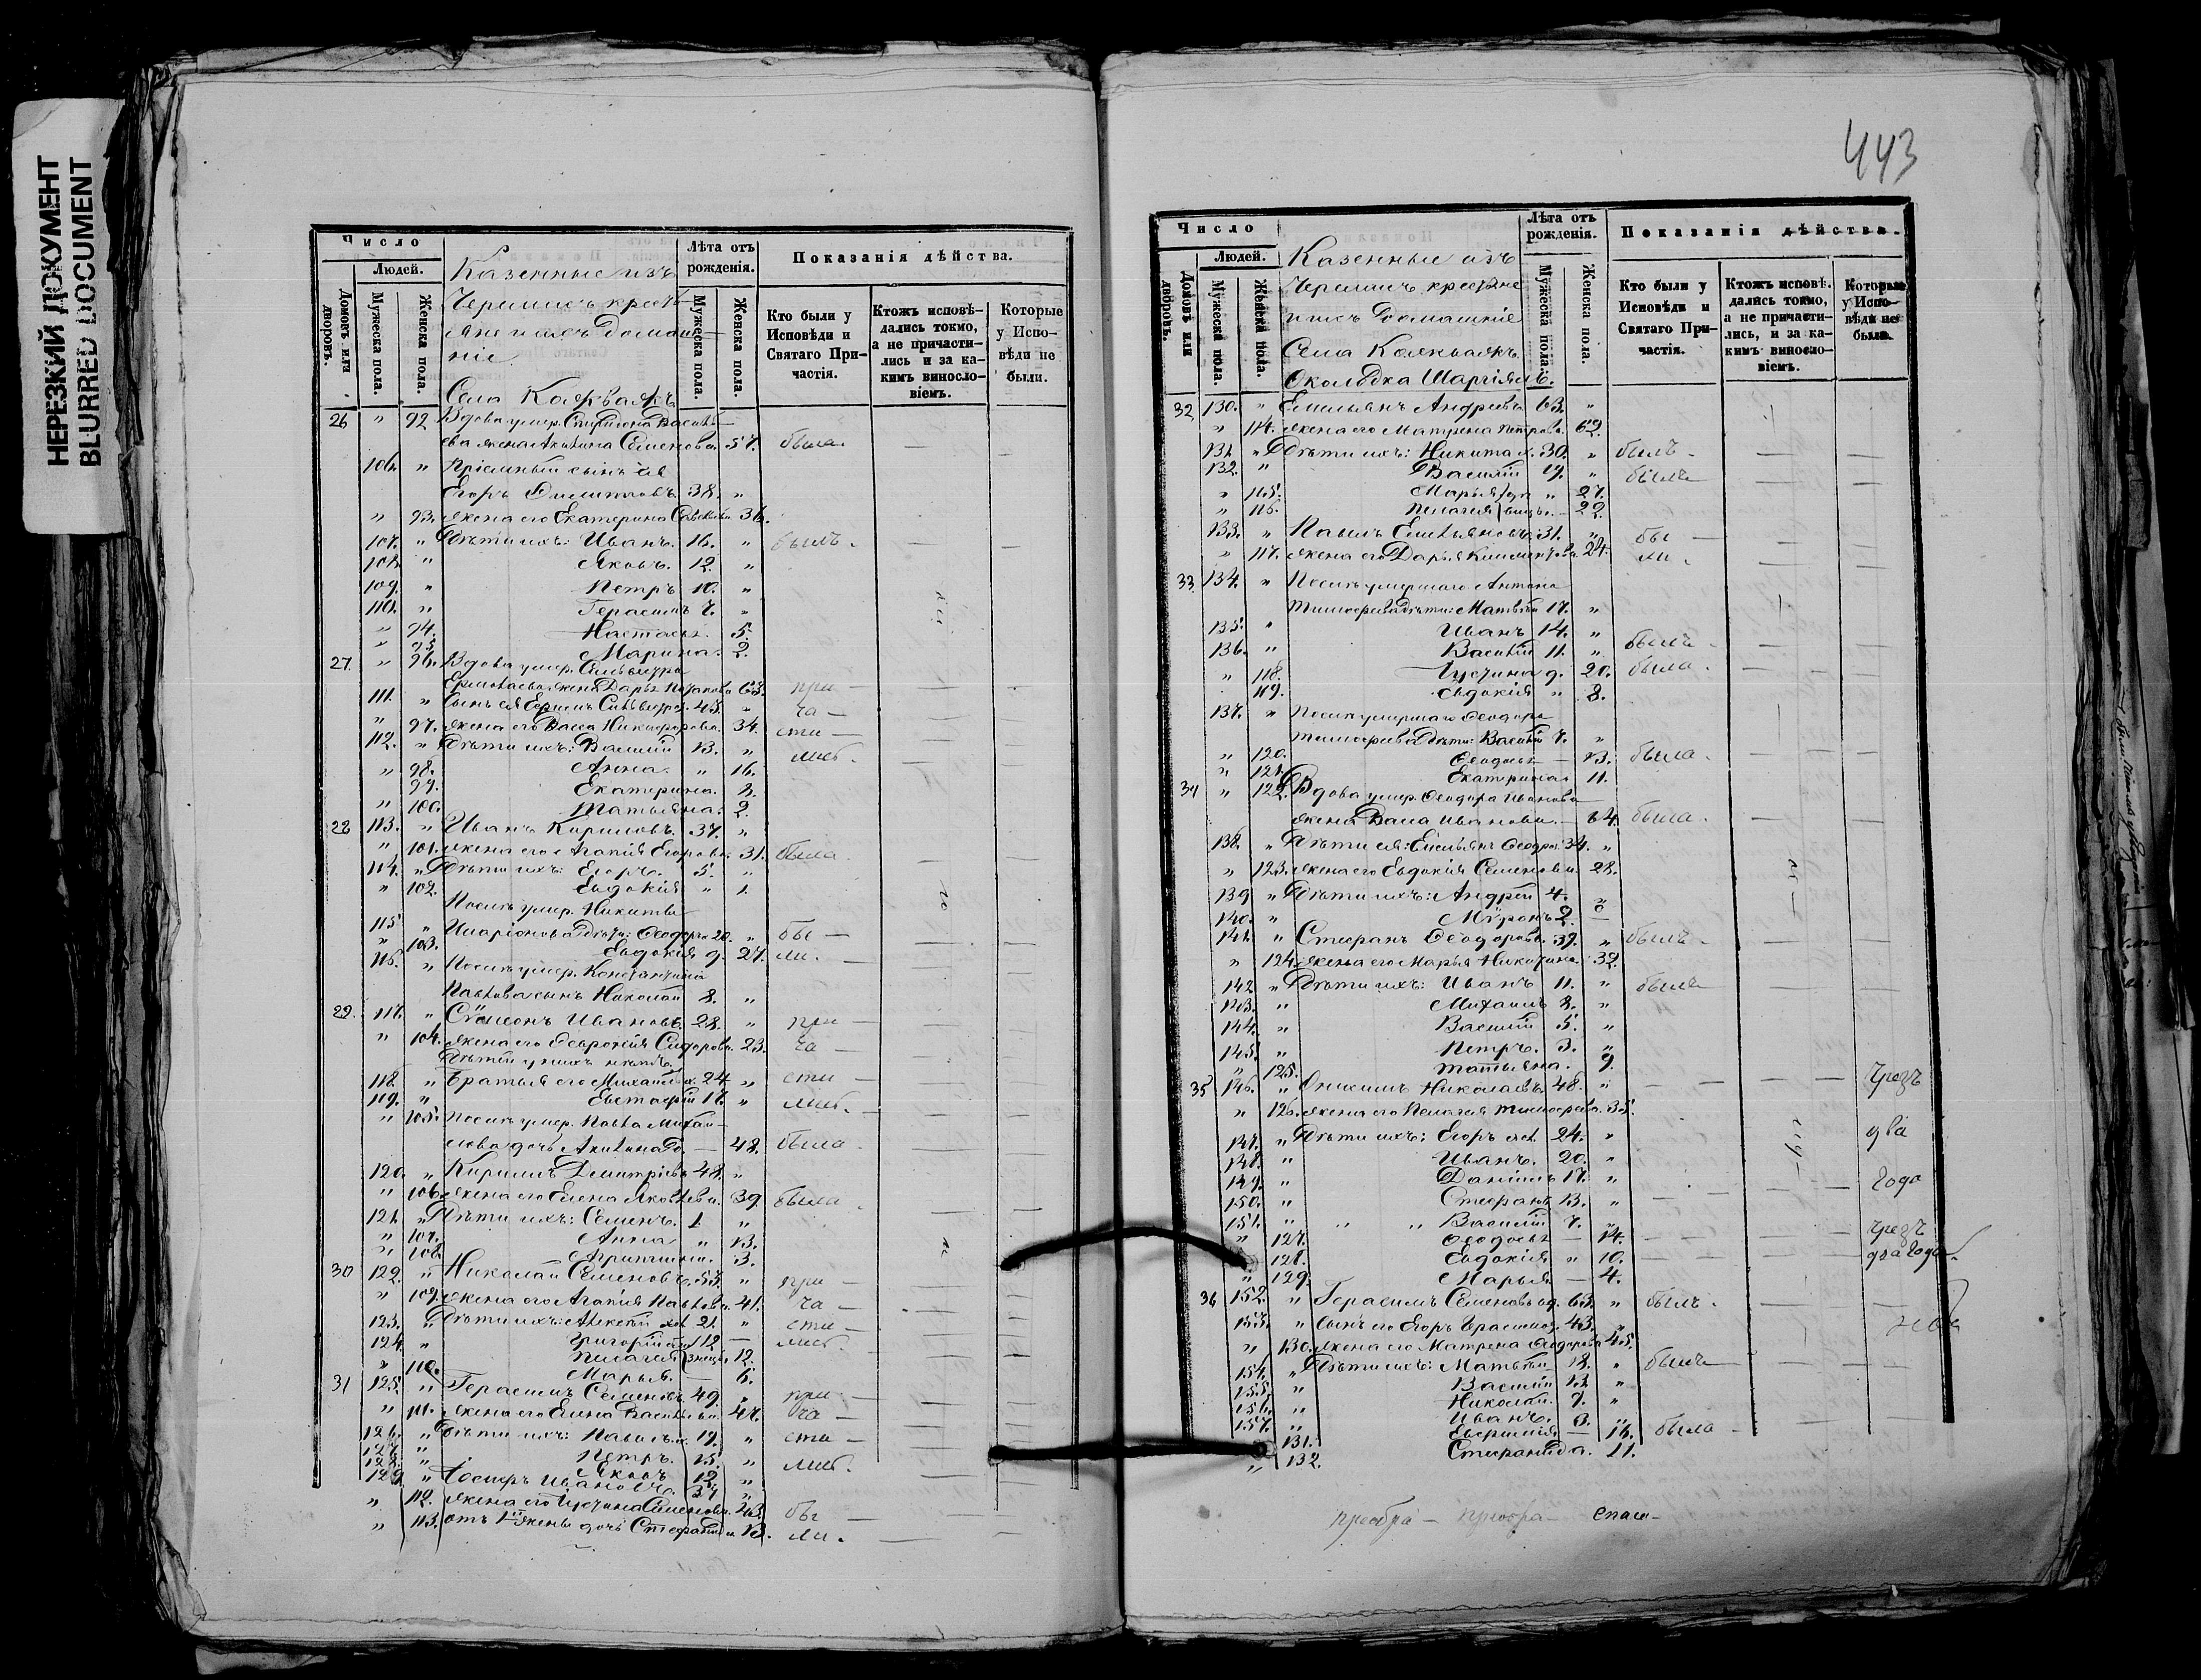 НЕРЕЗКИЙ ДОКУМЕНТ
BLURRED DOCUMENT
Число
Людей.
Домовъ или дворовъ.
Мужеска пола.
Женска пола.
Казенные изъ
Черемисъ кресть-
яне и ихъ домаш-
ніе
Лѣта отъ рожденія.
Мужеска пола.
Женска пола.
Показанія дѣйства.
Кто были у Исповѣди и Святаго При-частія.
Ктожъ исповѣ-дались токмо, а не причасти-лись и за ка-кимъ винослο-віемъ.
Которые у Испо-вѣди не были.
Села
26 " 92 Вдова умер. Спиридона Василь-
ева жена Акилина Семенова 57. была
106. " Пріемный сынъ ея
Егоръ 38. "
" 93. жена его Екатерина 36.
107. " Дѣти ихъ: Иванъ. 16. " былъ.
108. " Яковъ. 12. "
109. " Петръ 10. "
110. " Герасимъ 7. "
" 94. Настасья. 5.
" 95. Марина. 2.
27. " 96. Вдова умер. Сильвестра
Ермолаева жена Дарья 63. при-
111. " Сынъ ея 43. " ча-
" 97. жена его Васса Никифорова. 34. сти-
112. " Дѣти ихъ: Василій 13. " лись.
" 98. Анна. " 16.
99. Екатерина. 8.
" 100. Татьяна. 2.
28 113. " Иванъ Кириловъ. 37. "
" 101. жена его Агапія Егорова. 31. была.
114. " Дѣти ихъ: Егоръ. 5. "
" 102. Евдокія " 1.
Послѣ умер. Никиты
115 " Иларіонова Дѣти: Ѳеодоръ 20. " бы-
" 103. Евдокія д. 27. ли.
116. " Послѣ умер. Константина
Павлова сынъ Николай 8. "
29. 117. " Сѵмеонъ Ивановъ. 28. " при-
" 104. жена его Сидорова. 23. ча-
Дѣтей у нихъ нѣтъ.
118. " Братья его Михаилъ 24. " сти-
119. " Евстафій 17. " лись.
" 105. Послѣ умер. Павла Михай-
лова дочь Акилина — 48. была.
120. " Кирилъ Димитріевъ 48. "
" 106. жена его Елена Яковлева. 39. была
121. " Дѣти ихъ: Семенъ. 1. "
" 107. Анна " 13.
" 108. Агрипина. 3.
30 122. " Николай Семеновъ. 53. " при-
" 109. жена его Агапія Павлова. 41. ча-
123. " Дѣти ихъ: Алексѣй 21. " сти-
124. " Григорій 12 — лись.
" Пелагея 12.
" 110. Марья. — 6.
31 125. " Герасимъ Семеновъ 49. " при-
" 111. жена его Елена Васильева. 47. ча-
126. " Дѣти ихъ: Павелъ. 19. " сти-
127. " Петръ. 15. " лись.
128. " Яковъ. 12. "
129. " Ивановъ. 34 "
" 112. жена его Іустина Семенова. 43. бы-
" 113. отъ 1й жены дочь Стефанида 13. ли.
443
Число
Людей.
Домовъ или дворовъ.
Мужеска пола.
Женска пола.
Казенные изъ
Черемисъ крестьяне
и ихъ Домашніе
Села
Околодка
Лѣта отъ рожденія.
Мужеска пола.
Женска пола.
Показанія дѣйства.
Кто были у Исповѣди и Святаго При-частія.
Ктожъ исповѣ-дались токмо, а не причасти-лись, и за ка-кимъ винослο-віемъ.
Которые у Испо-вѣди не были.
32 130. " Емельянъ Андреевъ 63. "
" 114. жена его Матрена Петрова. 62.
131. " Дѣти ихъ: Никита х. 30. " былъ.
132. " Василій 19. " былъ
" 115. Марья " 27.
" 116. Пелагея 22.
133. " Павелъ Емельяновъ 31. " бы-
" 117. жена его Дарья 24. ли.
33. 134. " Послѣ умершаго Антона
Тимофеева Дѣти: Матвѣй 17. "
135. " Иванъ 14. " былъ.
136. " Василій 11. "
" 118. Іустина д. 20. была.
119. Евдокія " 8.
137. " Послѣ умершаго Ѳеодора
Тимофеева Дѣти: Василій 7. "
" 120. Ѳеодосья — 13. была.
" 121. Екатерина. 11.
34 " 122. Вдова умер. Ѳеодора Иванова
жена Васса Иванова. — 64. была.
138. " Дѣти ея: Емельянъ Ѳеодор. 34. "
" 123. жена его Евдокія Семенова. 28.
139 " Дѣти ихъ: Андрей 4. "
140. " Мѵронъ 2. —
141. " Стефанъ Ѳеодоровъ. 39. " былъ.
" 124. жена его Марья Никитина. 32.
142 " Дѣти ихъ: Иванъ 11. " былъ
143. " Михаилъ 8. "
144. " Василій 5. "
145. " Петръ. 3. "
" 125. Татьяна. 9.
35 146. " Онисимъ Николаевъ. 48. " чрезъ
" 126. жена его Пелагея Тимофеева. 35.
147. " Дѣти ихъ: Егоръ 24. " два
148. " Иванъ. 20. "
149. " Даніилъ 17. " года
150. " Стефанъ 13. "
151. " " " Василій 7. " чрезъ
" 127. Ѳеодосья — 14. два года
128. Евдокія " 10.
" 129. Марья — 4.
36 152. " Герасимъ Семеновъ вд. 63. " былъ.
153. " сынъ его Егоръ Герасимов. 43. "
" 130. жена его Матрена Ѳеодорова 45.
154. " Дѣти ихъ: Матвѣй 18. " былъ
155. " Василій 13. "
156. " Николай. 7. "
157. " Иванъ. 3. "
131. — 16. была
" 132. Стефанида. 11.